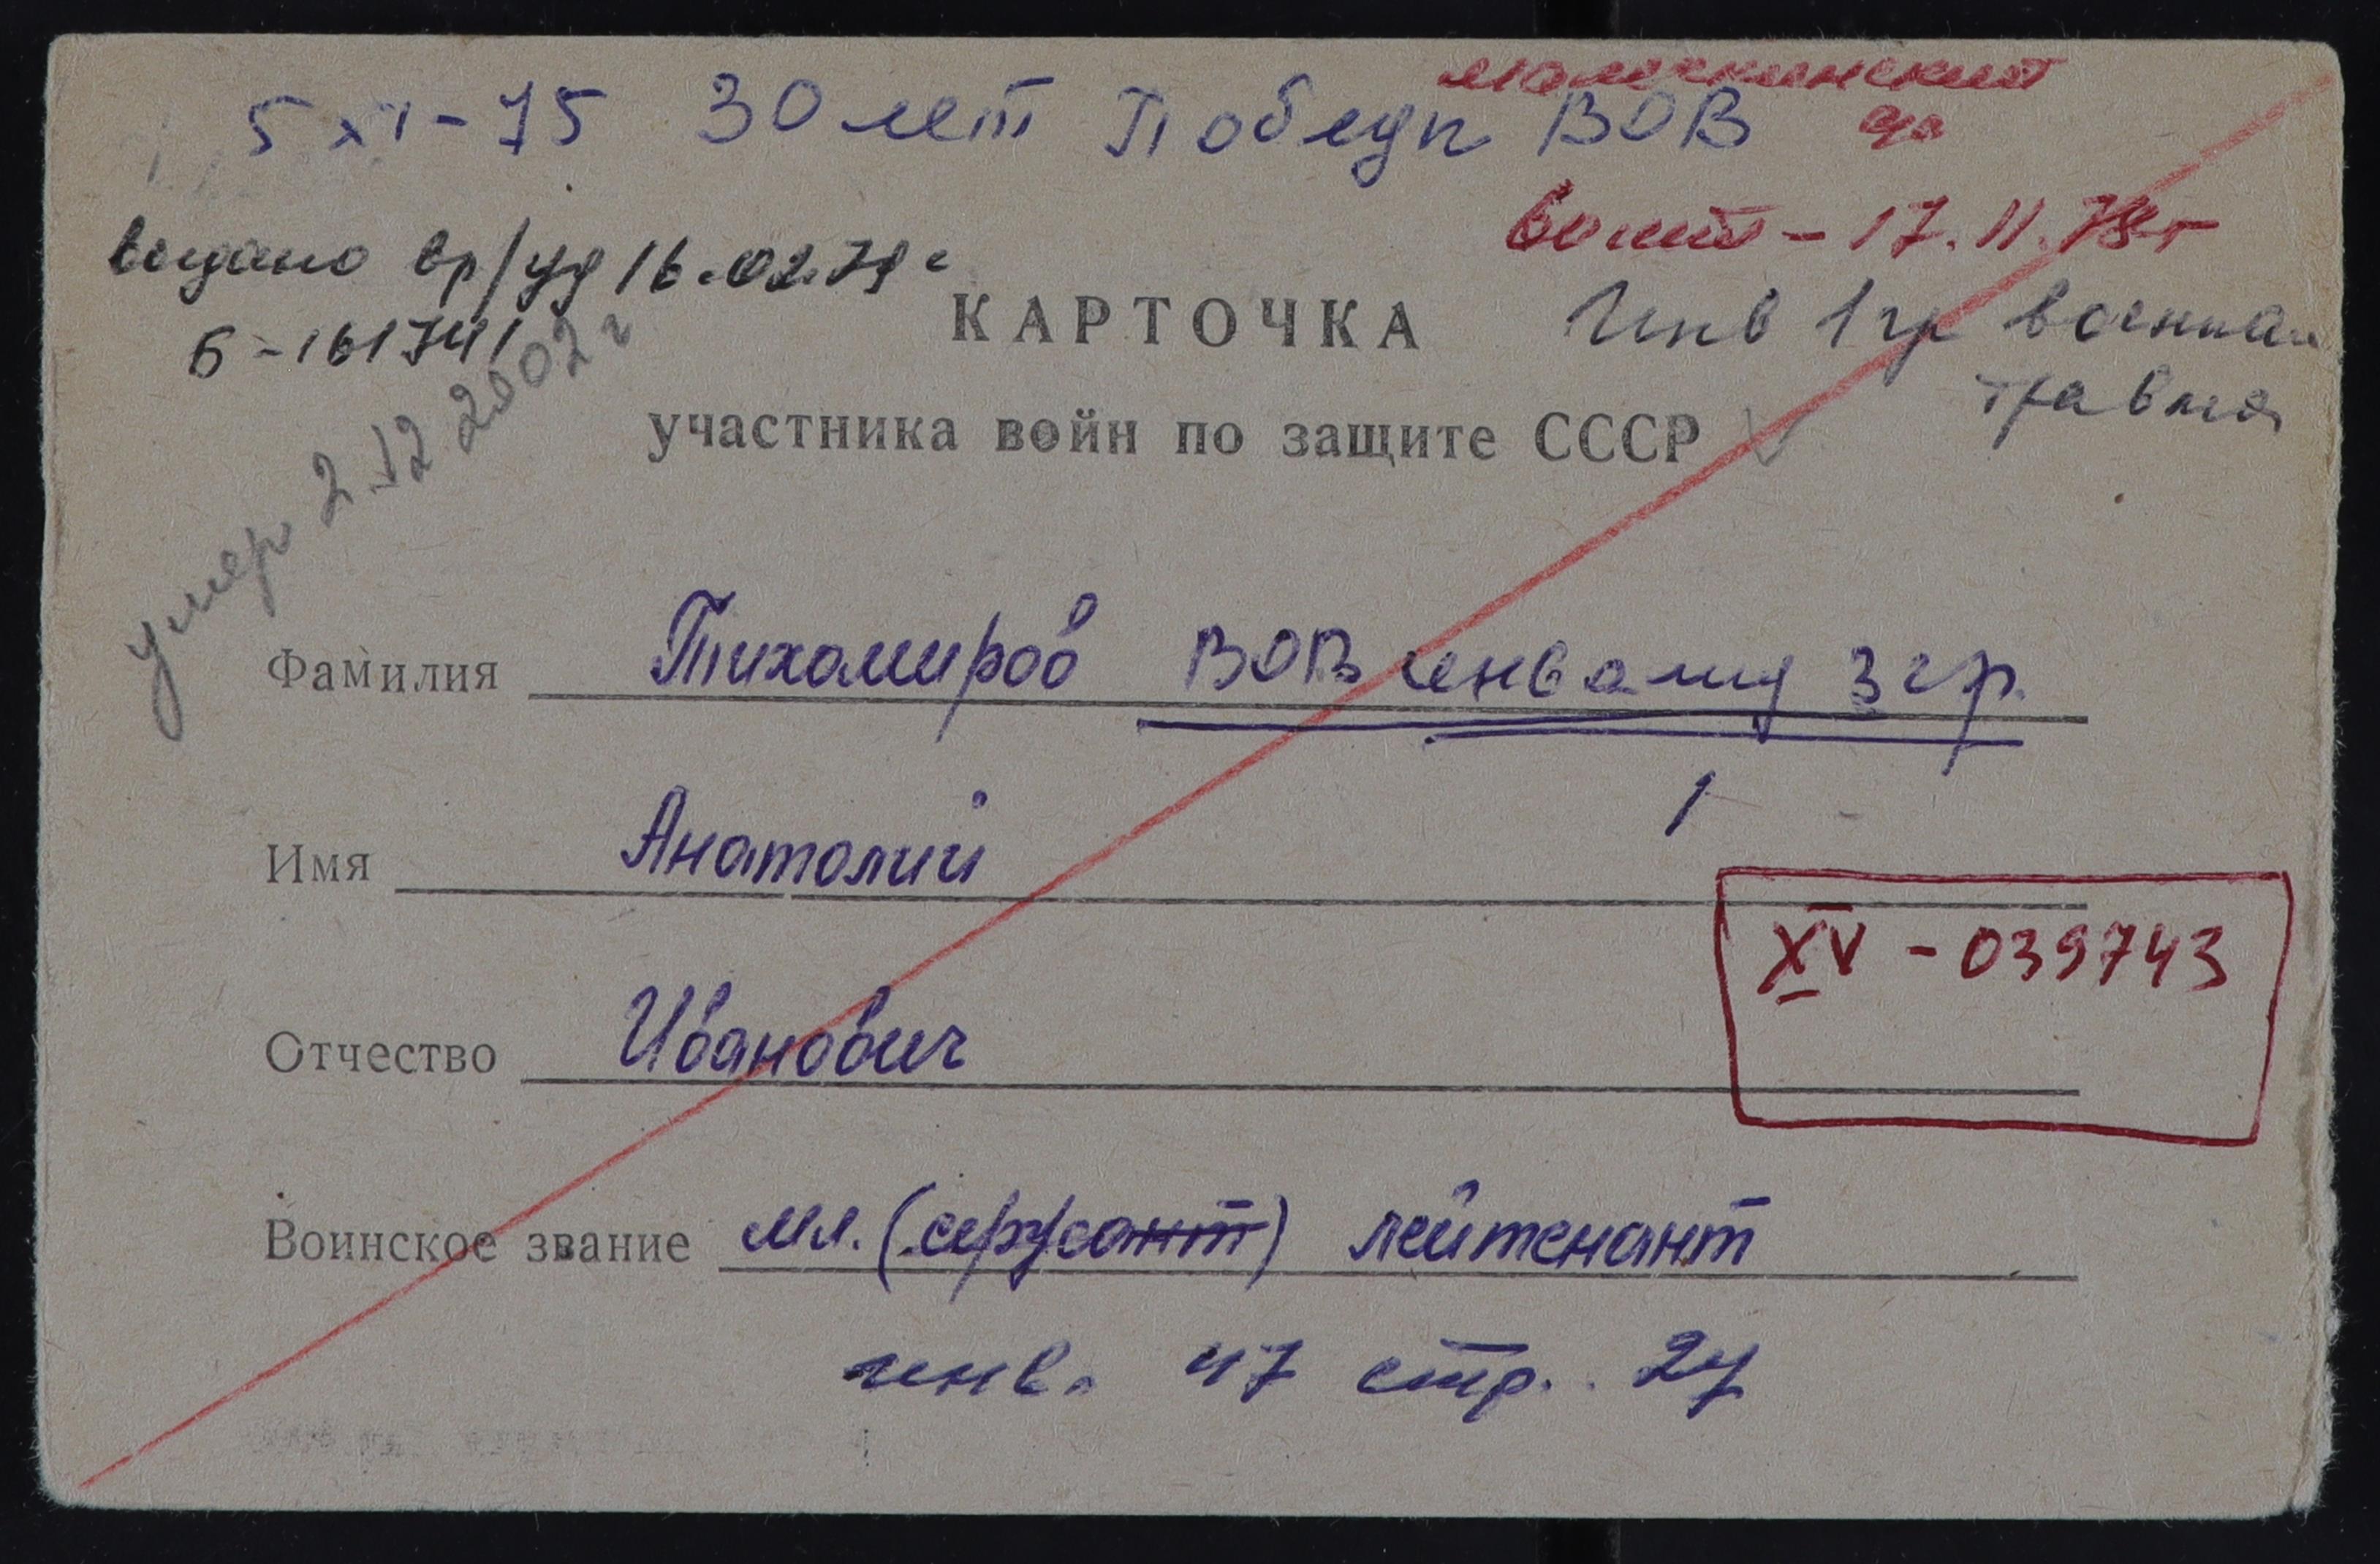 5 XI-75 30 лет Победы ВОВ
17.11.78г
выдано вр/уд 16.02.79г
Б-161741
КАРТОЧКА
Инв 1 гр военная
травма
участника войн по защите СССР
умер 2.12.2002г
Фамилия Тихомиров ВОВ инвалид 3 гр.
1
Имя Анатолий
XV - 039743
Отчество Иванович
Воинское звание мл. (сержант) лейтенант
инв. 47 стр. 27